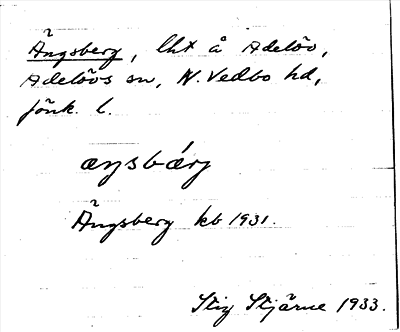 Ängsberg, lht å Adelöv,
Adelövs sn, N. Vedbo hd,
Jönk. l.
æŋsbærj
Ängsberg kb 1931.
Stig Stjärne 1933.